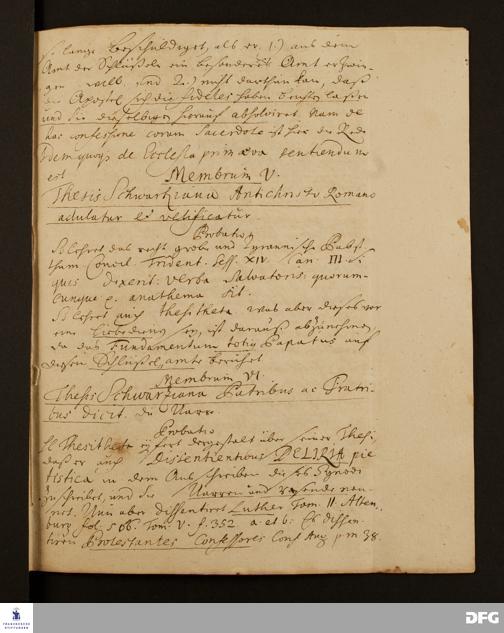 so lange beschuldiget, als er 1.) aus dem
Amt der Schlüsseln ein besonderes Amt erzwin-
gen will, und 2.) nicht darthun kan, daß
die Apostel sich die fideles haben beichten laßen
und sie dieselbigen hierauf absolviret. Nam de
hac confessione coram Sacerdote ist hier die Rede
Idemque de Ecclesia primaeva sentiendum
est.
Membrum V.
Thesis Schwartziana Antichristo Romano
adulatur et velificatur.
Probatio
So lehret das recht grobe und tyrannische Pabst-
thum Concil. Trident. Sess. XIV. can. III. Si
quis dixerit: verba Salvatoris: quorum-
cunque &c. anathema sit.
So lehret auch Thesitheta. Was aber dieses vor
eine Liebedienung sey, ist daraus abzunehmen,
da das Fundamentum totius Papatus auf
diesem Schlüssel-amte beruhet
Membrum VI.
Thesis Schwartziana Patribus ac Fratri-
bus dicit. du Narr
Probatio
Thesitheta eifert dergestalt über seiner Thesi,
daß er auch Dissentientibus DELIRIA pie-
tistica in dem Ausschreiben des Synodi
zuschreibet, und sie Narren und rasende nen-
net. Nun aber dissentiret Luther Tom. II Alten-
burg. fol. 506. Tom. V. f. 352 a. et b. Es dissen-
tiren Protestantes Confessores Conf. Aug. p.m. 38.
FRANCKESCHE STIFTUNGEN
DFG